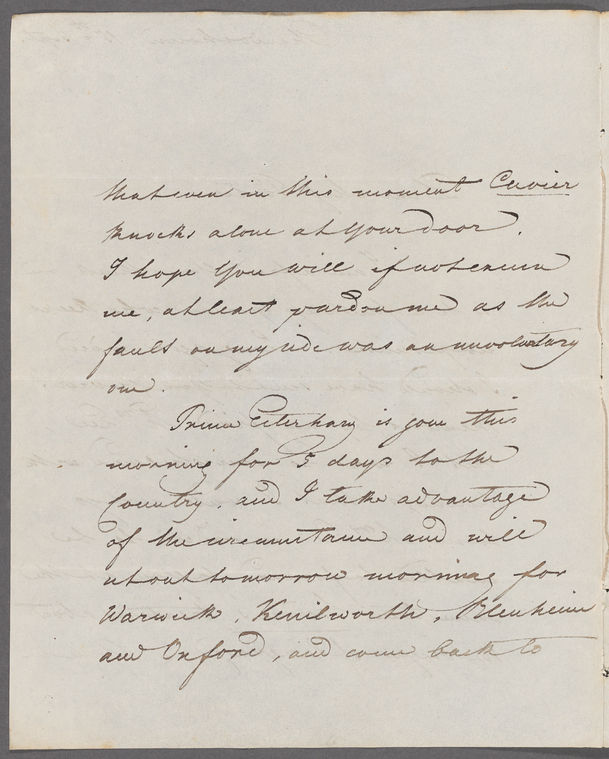 that even in this moment Cuvier
knocks alone at your door.
I hope You will if not excuse
me, at least pardon me as the
fault on my side was an unvoluntary
one.
Prince Esterhazy is gone this
morning for 5 days to the
Country, and I take advantage
of the circumstance and will
set out tomorrow morning for
Warwick, Kenilworth, Blenheim
and Oxford, and come back to